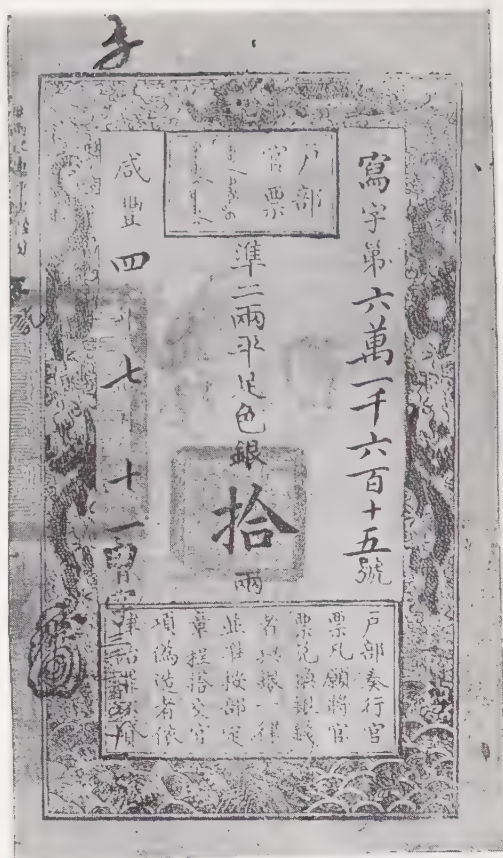 寫字第六萬一千六百十五號
戶部
官票
準二兩平足色銀拾兩
咸豐四年七月十一日
戶部奏行官
票凡願將官
票兌換銀錢
者與銀一律
並準按部定
章程搭交官
項偽造者依
律治罪不貸